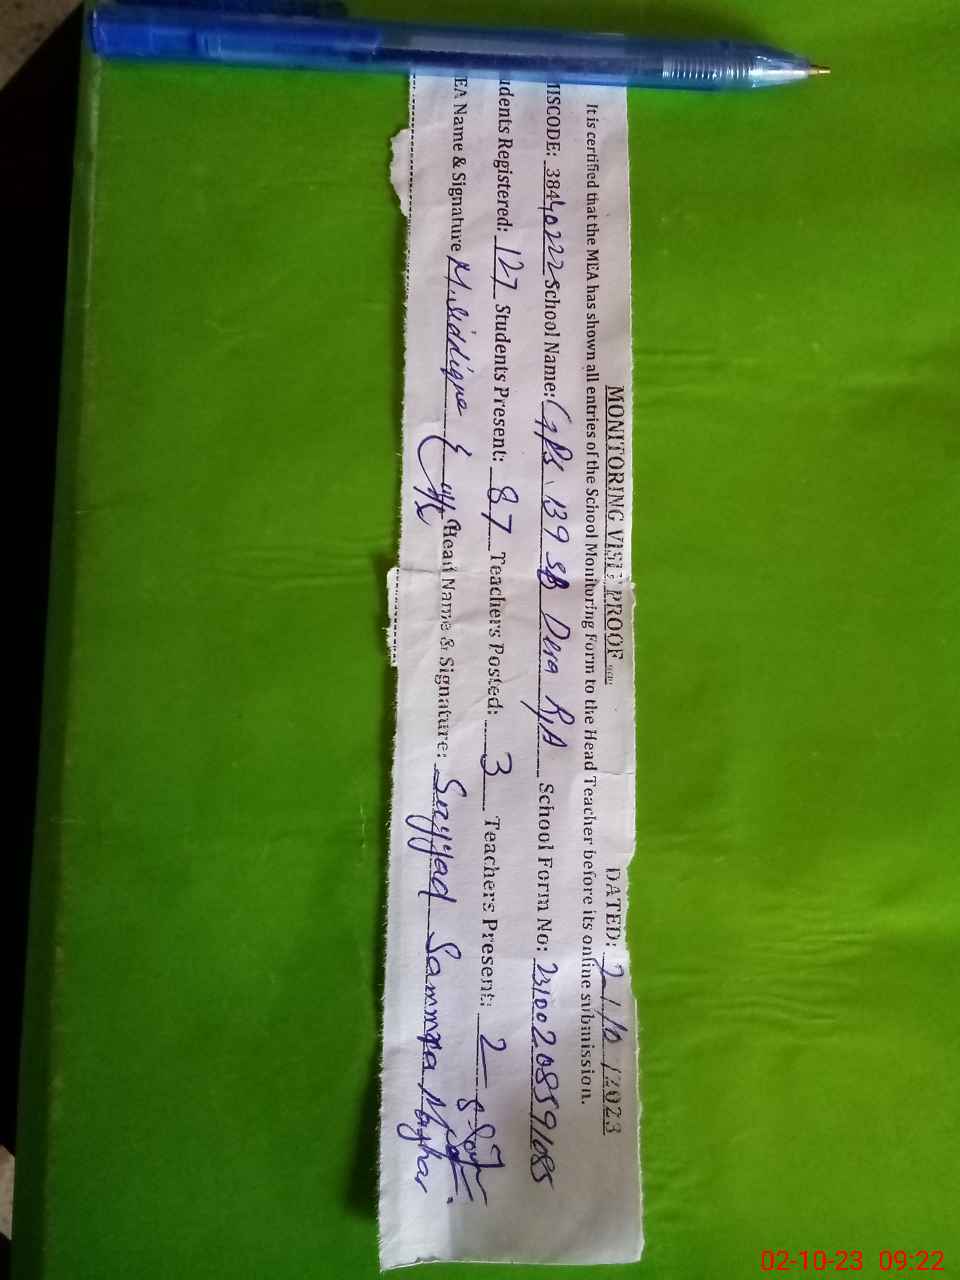 MONITORING VISIT PROOF DATED: 2/10/2023
It is certified that the MEA has shown all entries of the School Monitoring Form to the Head Teacher before its online submission.
MISCODE: 38440222 School Name: GPS 139 SB Dera RJA School Form No: 23100208591085
udents Registered: 127 Students Present: 87 Teachers Posted: 3 Teachers Present: 2
EA Name & Signature M. Siddique Head Name & Signature: Sayyad Sammra Mazhar
02-10-23 09:22